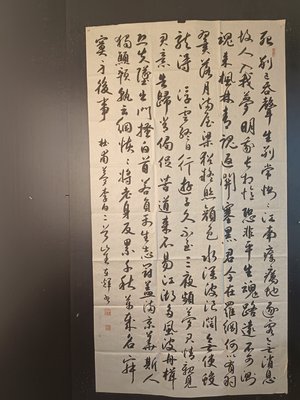 死別已吞聲生別常惻〻江南瘴癘地逐客無消息
故人入我夢明我長相憶恐非平生魂路遠不可測
魂來楓林青魂返關塞黑君今在羅網何以有羽
翼落月滿屋梁猶疑照顏色水深波浪闊無使蛟
龍得浮雲終日行遊子久不至三夜頻夢君情親見
君意告歸常局促苦道來不易江湖多風波舟楫
恐失墜出門搔白首若負平生志冠蓋滿京華斯人
獨顦顇孰云網恢〻將老身反累千秋萬歲名寂
寞身後事 杜甫夢李白二首